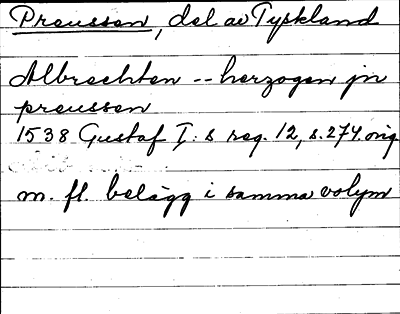 Preussen, del av Tyskland
Albrechten -- herzogen jn
preussen
1538 Gustaf I:s reg. 12, s. 274. orig
m. fl. belägg i samma volym